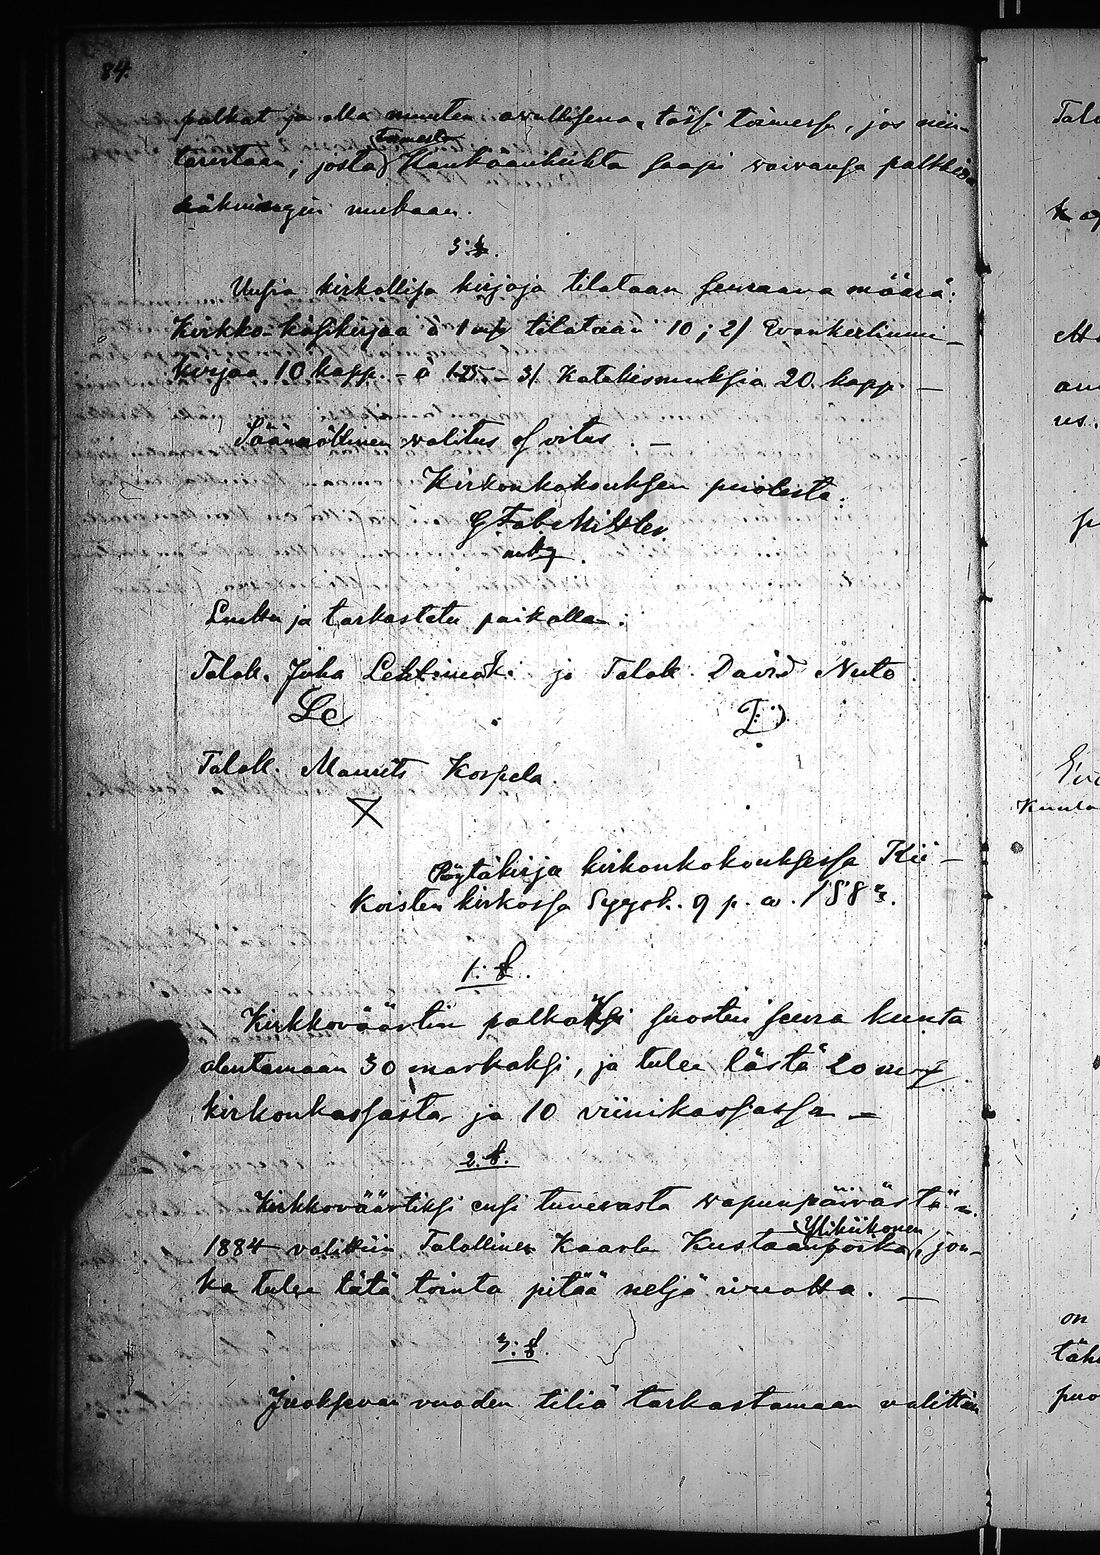 84.
palkat ja olla muuten avullisena tässä toimessa, jos niin
tarvitaan; josta toimesta Kankaanhuhta saapi vaivansa palkkion
mukaan.
3. §.
Uusia kirkollisia kirjoja tilataan seuraava määrä:
Kirkko-käsikirjaa à 1 mk tilataan 10; 2/ Evankeliumi-
kirjaa 10 kapp. – à 1.25 – 3/ Katekismuksia 20 kapp. –
Säännöllinen valitus of vitas. –
Kirkonkokouksen puolesta:
Luettu ja tarkastettu paikalla:
Talok. Juha Lehtimäki ja Talok. David Nuto.
Le
Talok. Maurits Korpela.
X
Pöytäkirja kirkonkokouksessa Kii-
koisten kirkossa Syysk. 9 p. v. 1883.
1. §.
Kirkkoväärtin palkaksi suostui seurakunta
alentamaan 30 markaksi, ja tulee tästä 20 mk
kirkonkassasta ja 10 viinikassassa –
2. §.
Kirkkoväärtiksi ensi tulevasta vapunpäivästä v.
1884 valittiin Talollinen Kaarle Kustaanpoika Ylikiikonen, jon-
ka tulee tätä tointa pitää neljä vuotta. –
3. §.
Juoksevan vuoden tiliä tarkastamaan valittiin
Talo
etta
on
täh
puo